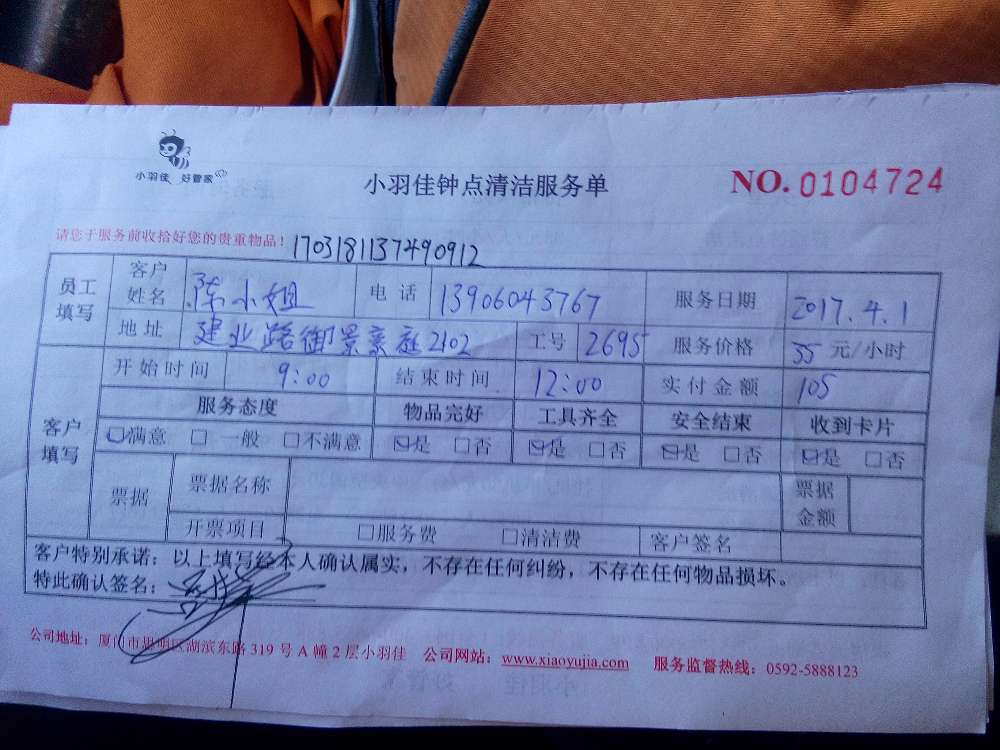 小羽佳 好管家
小羽佳钟点清洁服务单
NO. 0104724
请您于服务前收拾好您的贵重物品！ 1703181137490912
员工填写 客户姓名 陈小姐 电话 13906043767 服务日期 2017.4.1
地址 建业路御景豪庭2102 工号 2695 服务价格 35 元/小时
客户填写 开始时间 9:00 结束时间 12:00 实付金额 105
服务态度 物品完好 工具齐全 安全结束 收到卡片
☑满意 □一般 □不满意 ☑是 □否 ☑是 □否 ☑是 □否 ☑是 □否
票据 票据名称 票据金额
开票项目 □服务费 □清洁费 客户签名
客户特别承诺：以上填写经本人确认属实，不存在任何纠纷，不存在任何物品损坏。
特此确认签名：
公司地址：厦门市思明区湖滨东路 319 号 A 幢 2 层小羽佳 公司网站：www.xiaoyujia.com 服务监督热线：0592-5888123